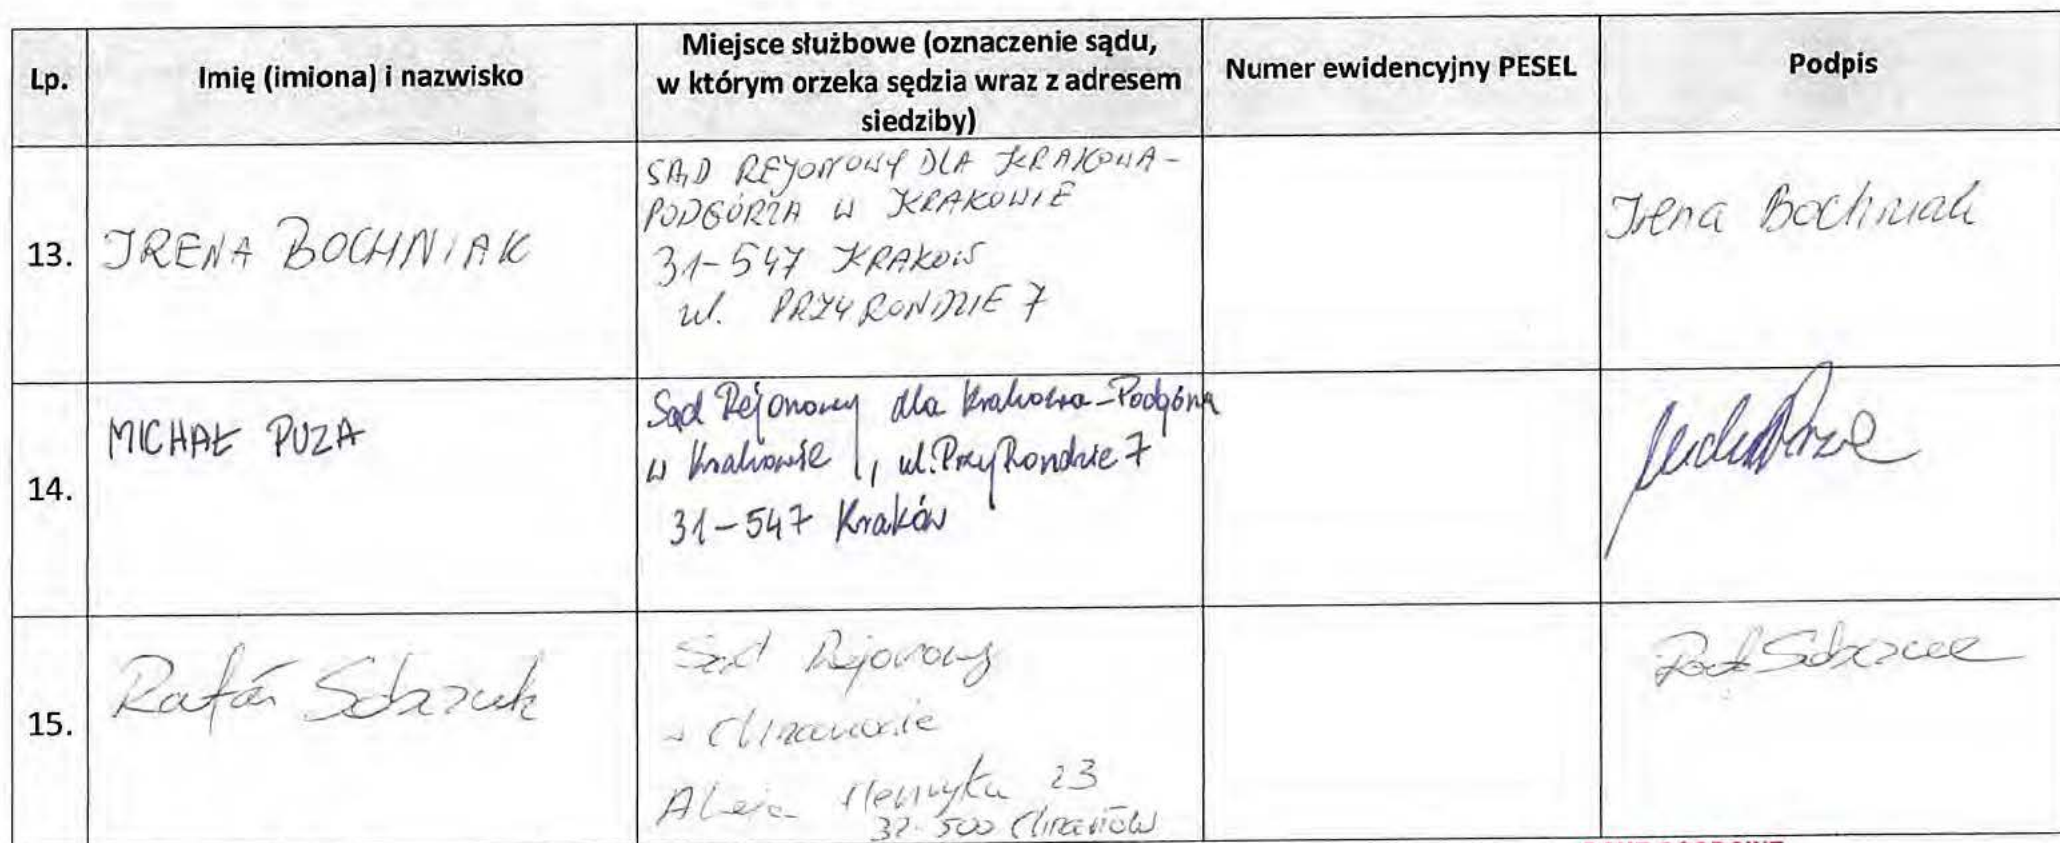 Lp.
Imię (imiona) i nazwisko
Miejsce służbowe (oznaczenie sądu,
w którym orzeka sędzia wraz z adresem
siedziby)
Numer ewidencyjny PESEL
Podpis
13.
IRENA BOCHNIAK
SĄD REJONOWY DLA KRAKOWA-
PODGÓRZA W KRAKOWIE
31-547 KRAKOW
ul. PRZY RONDZIE 7
Irena Bochniak
14.
MICHAŁ PUZA
Sąd Rejonowy dla Krakowa-Podgórza
w Krakowie, ul. Przy Rondzie 7
31-547 Kraków
15.
Rafał Sobczuk
Sąd Rejonowy
w Chrzanowie
Aleja Henryka 23
32-500 Chrzanów